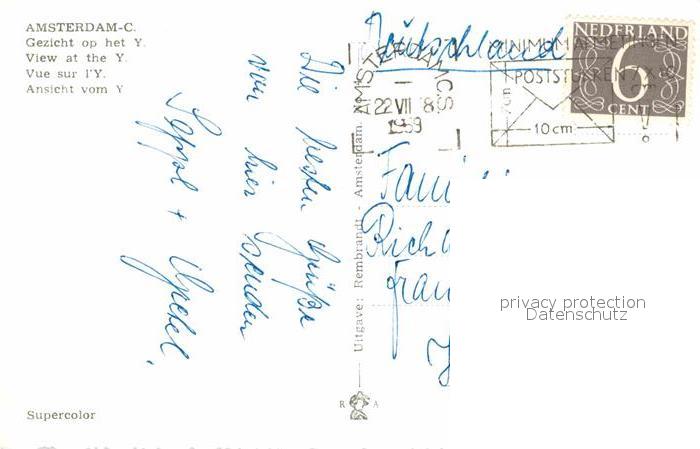 AMSTERDAM-C.
Gezicht op het Y.
View at the Y.
Vue sur l'Y.
Ansicht vom Y
Die besten Grüße
von hier senden
Seppl +
Supercolor
Uitgave: Rembrandt - Amsterdam.
R A
Deutschland
AMSTERDAM C.S.
22 VII 8
1959
MINIMUM AFMETINGEN
POSTSTUKKEN 7 X 10
7 cm
10 cm
NEDERLAND
6
CENT
Fam
Rich
Fran
privacy protection
Datenschutz